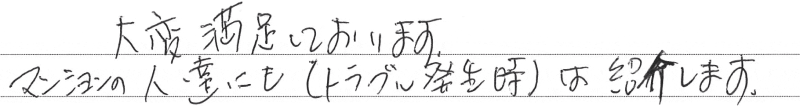 大変満足しております。
マンションの人達にも(トラブル発生時)は紹介します。